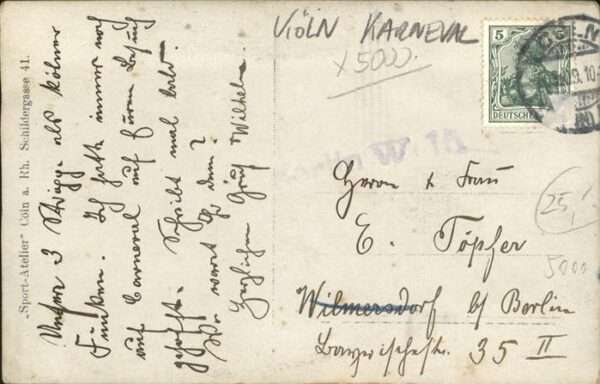 „Sport-Atelier" Cöln a. Rh. Schildergasse 41.
Unsere 3 als Kölner
Funken. Ich hatte immer noch
auf Carneval auf Euren Besuch
gehofft. Schreibt mal bald.
Wo wart Ihr denn?
Herzlichen Gruß Wilhelm.
KÖLN KARNEVAL
x 5000.
5
DEUTSCHES
W. 15
Herrn & Frau
E. Töpfer
Wilmersdorf b/ Berlin
Bayerischestr. 35 II
25,-
5000